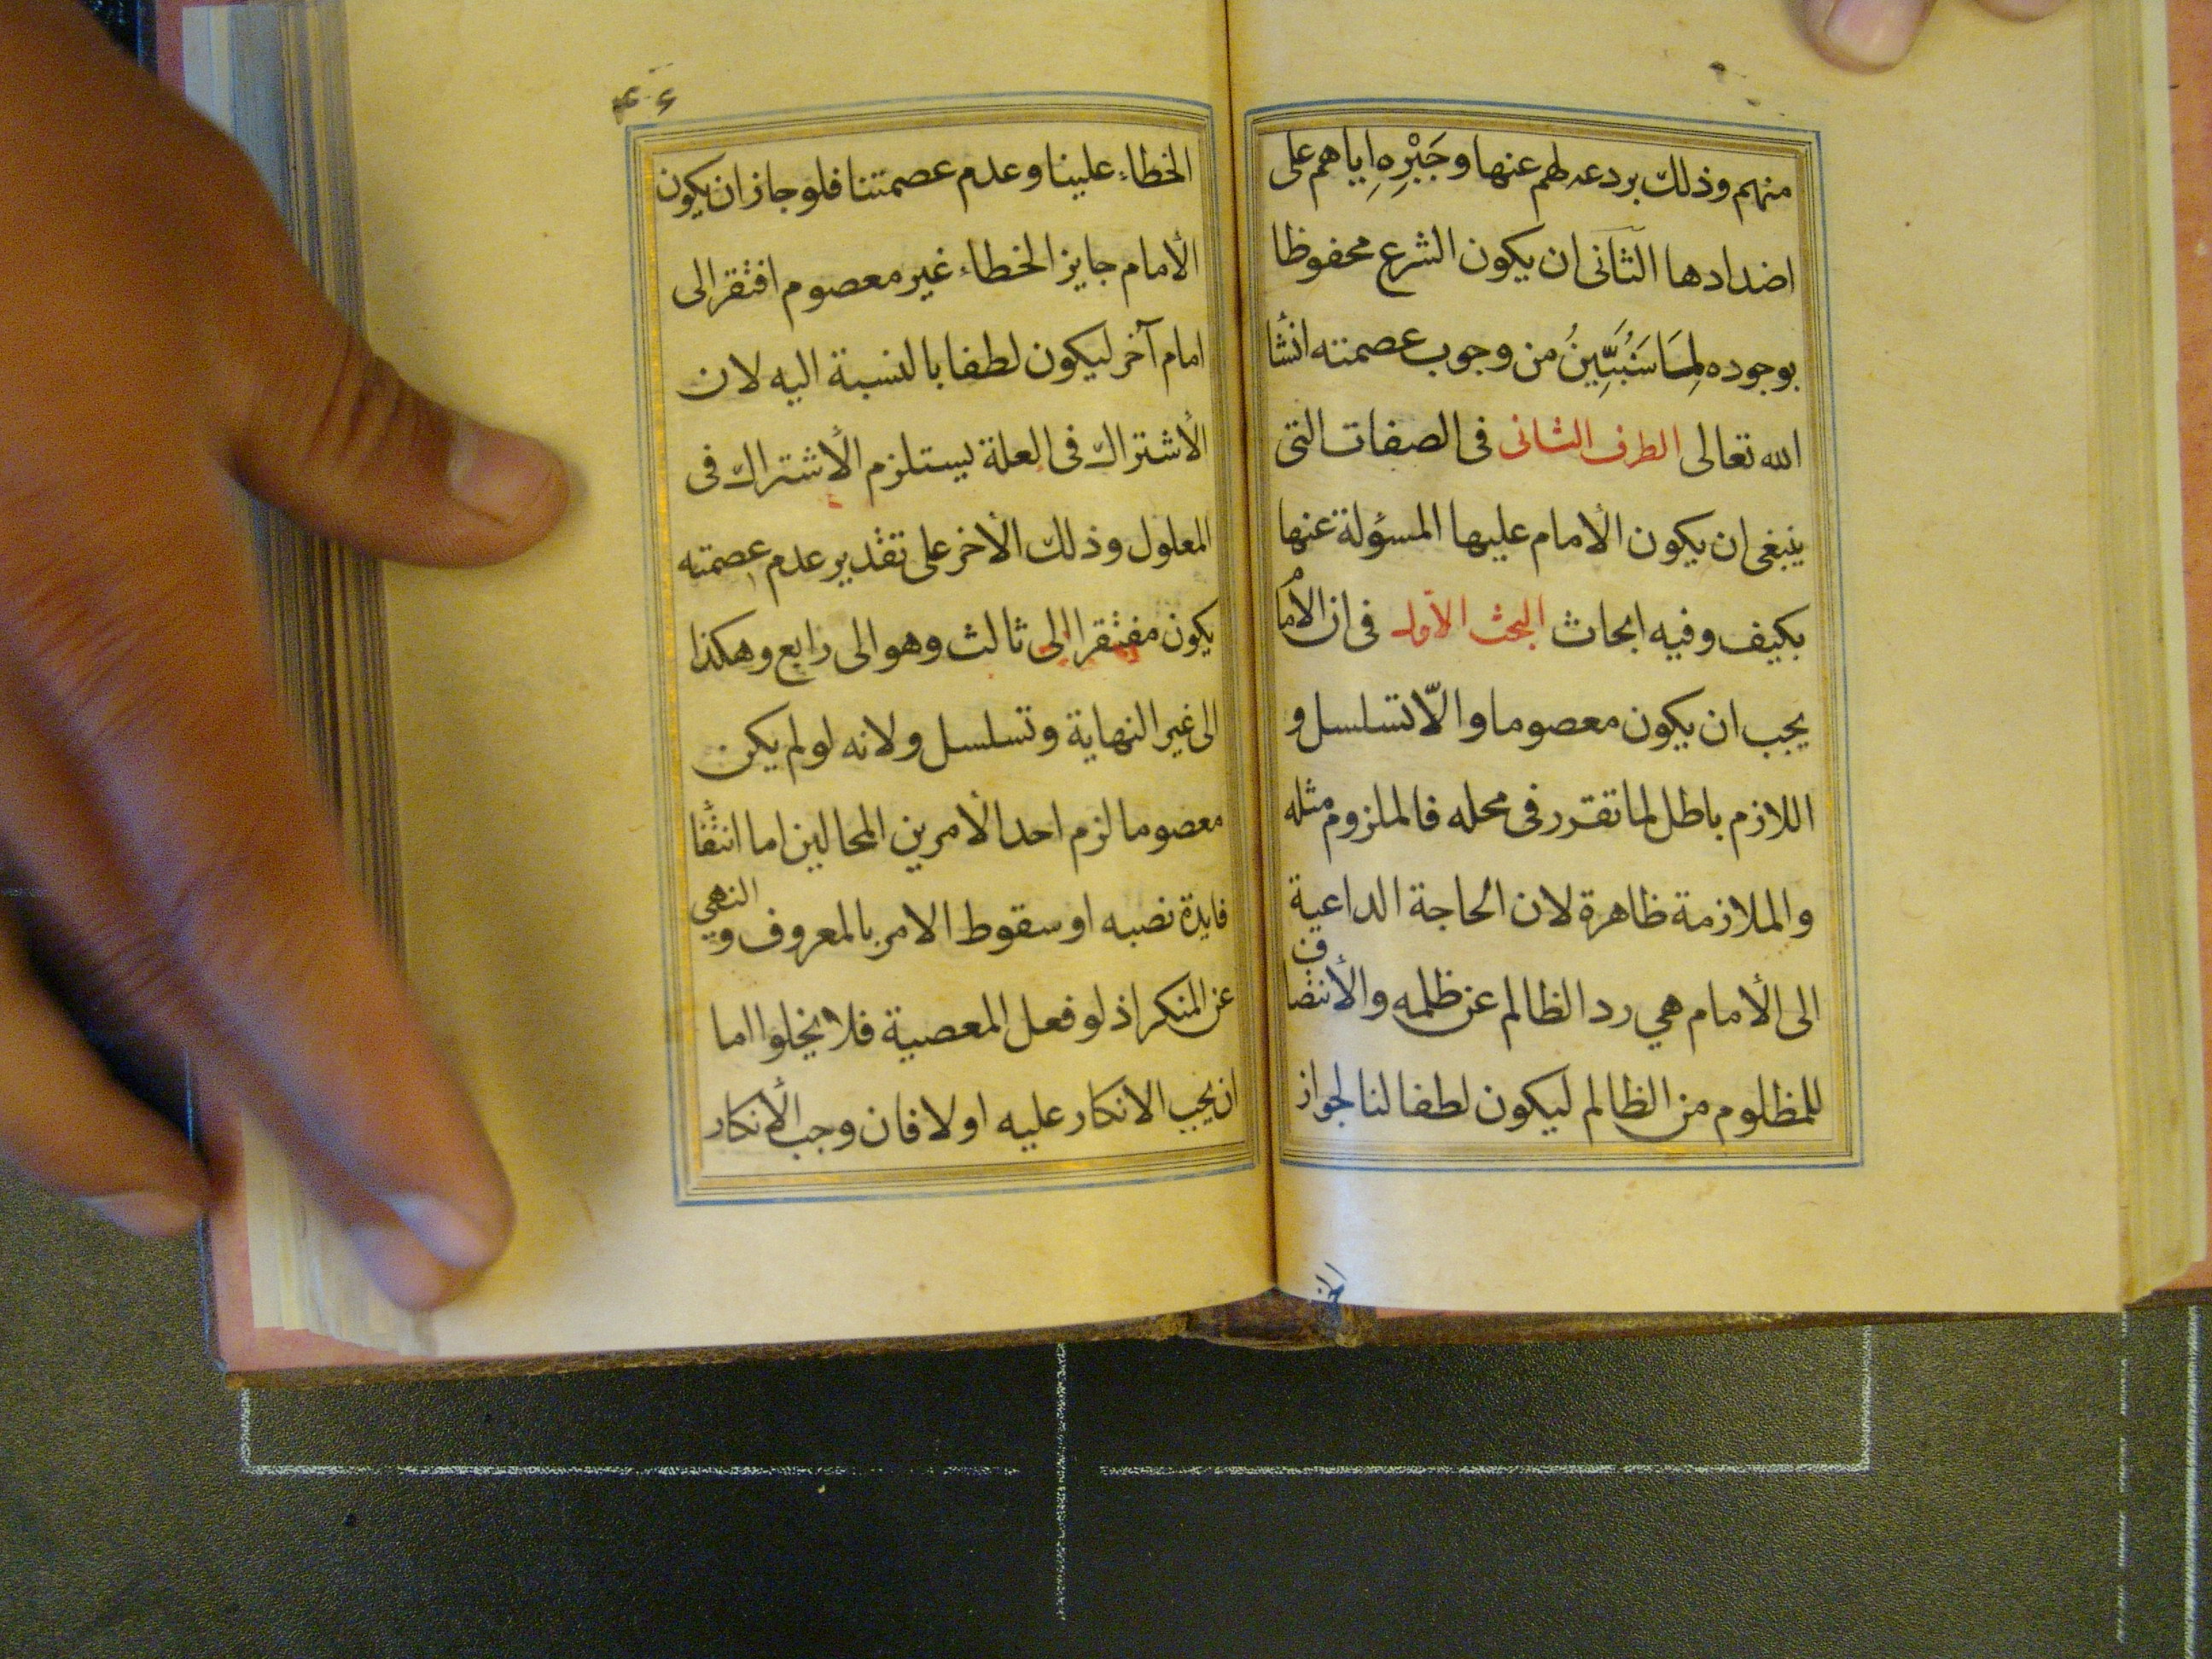 منهم وذلك بردعه لهم عنها وجَبْرِهِ اياهم على
اضدادها الثانى ان يكون الشرع محفوظا
بوجوده لِمَا سَنُبَيِّنُ من وجوب عصمته انشأ
الله تعالى الطرف الثانى فى الصفات التى
ينبغى ان يكون الأمام عليها المسؤلة عنها
بكيف وفيه ابحاث البحث الأول فى ان الأمام
يجب ان يكون معصوما والّا تسلسل و
اللازم باطل لما تقرر فى محله فالملزوم مثله
والملازمة ظاهرة لان الحاجة الداعية
الى الأمام هي رد الظالم عن ظلمه والأنتصاف
للمظلوم من الظالم ليكون لطفا لنا لجواز
الخطاء علينا وعدم عصمتنا فلو جاز ان يكون
الأمام جايز الخطاء غير معصوم افتقر الى
امام آخر ليكون لطفا بالنسبة اليه لان
الأشتراك فى العلة يستلزم الأشتراك فى
المعلول وذلك الأخر على تقدير عدم عصمته
يكون مفتقرا الى ثالث وهو الى رابع وهكذا
الى غير النهاية وتسلسل ولانه لو لم يكن
معصوما لزم احد الأمرين المحالين اما انتفأ
فايدة نصبه او سقوط الامر بالمعروف والنهي
عن المنكر اذ لو فعل المعصية فلا يخلوا اما
ان يجب الانكار عليه او لا فان وجب الأنكار